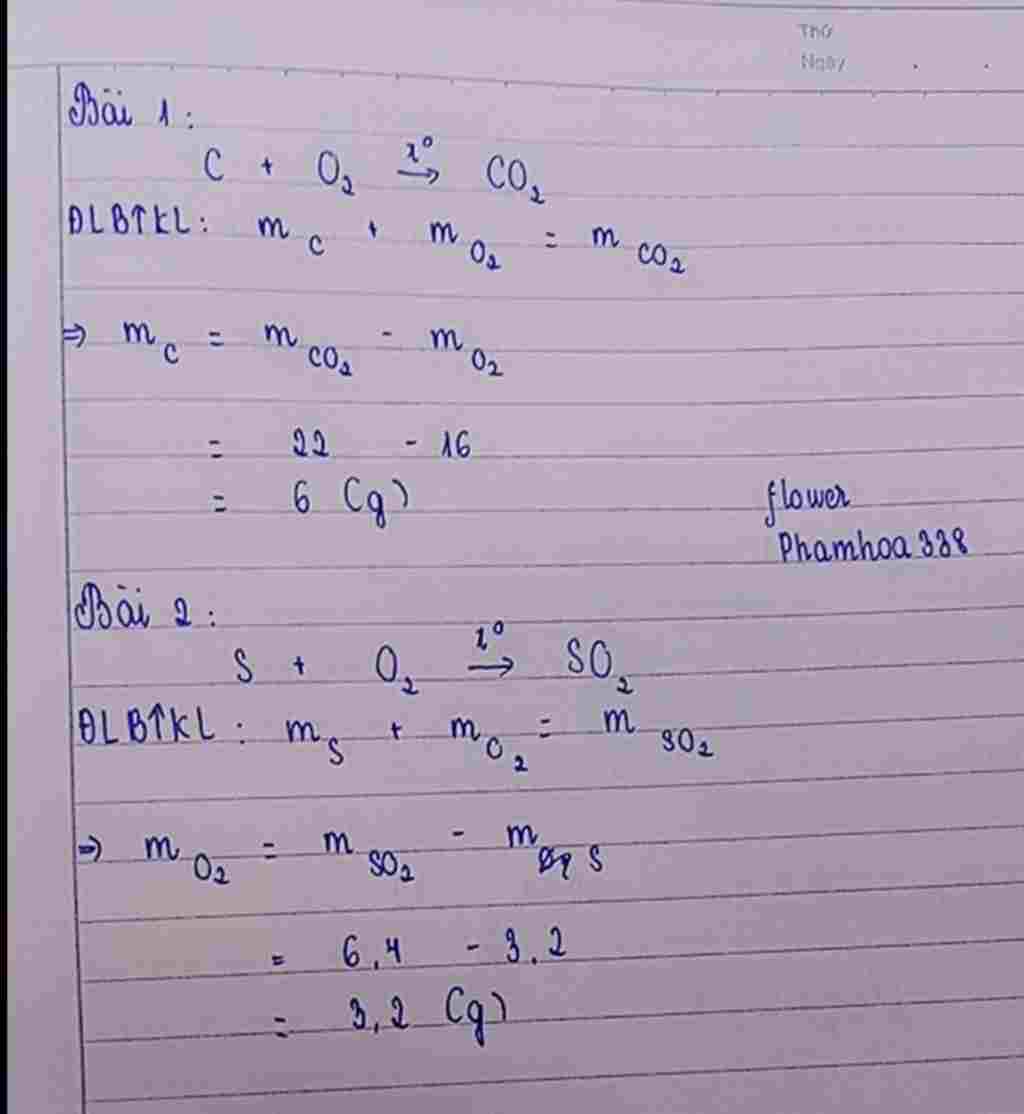 Thứ
Ngày
Bài 1:
C + O₂ →(t°) CO₂
ĐLBTKL: m_C + m_O₂ = m_CO₂
⇒ m_C = m_CO₂ - m_O₂
= 22 - 16
= 6 (g)
flower
Phamhoa338
Bài 2:
S + O₂ →(t°) SO₂
ĐLBTKL: m_S + m_O₂ = m_SO₂
⇒ m_O₂ = m_SO₂ - m_S
= 6,4 - 3,2
= 3,2 (g)